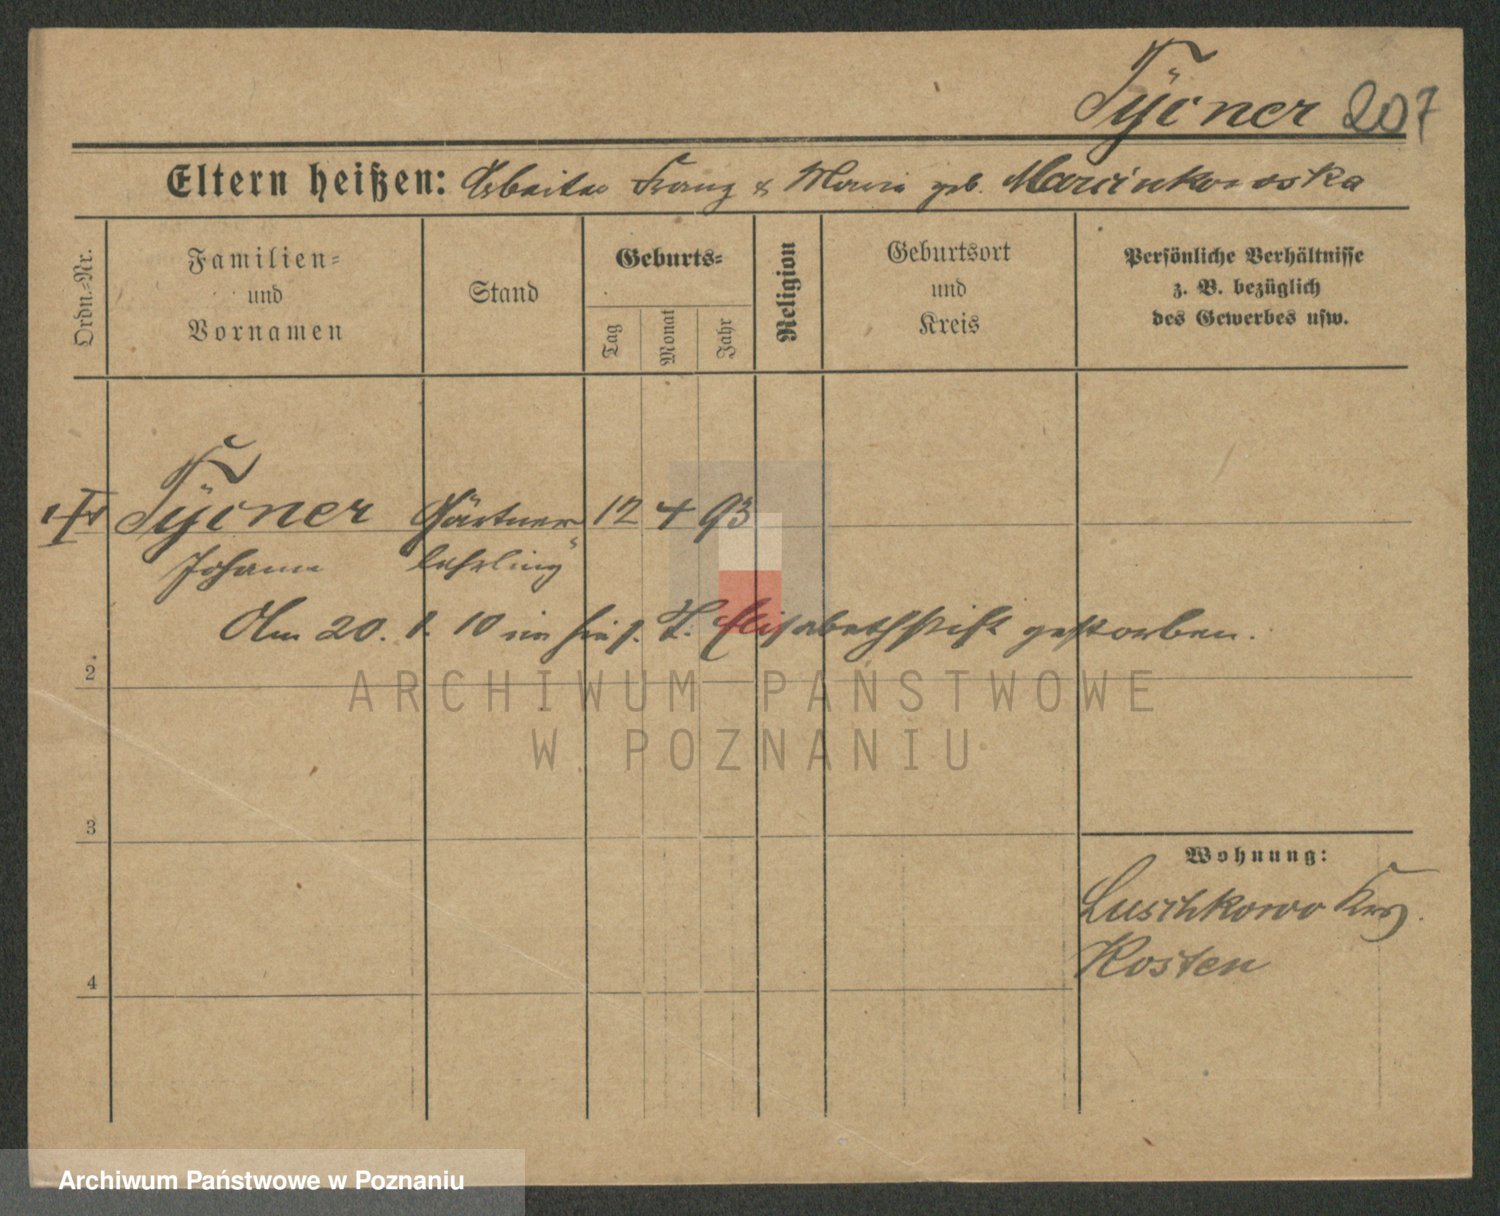 Tycner 207
Eltern heißen: Arbeiter Franz & Maria geb. Marcinkowska
Ordn.-Nr.
Familien-
und
Vornamen
Stand
Geburts-
Tag
Monat
Jahr
Religion
Geburtsort
und
Kreis
Persönliche Verhältnisse
z. B. bezüglich
des Gewerbes usw.
Tycner Gärtner 12 4 93
Johann lehrling
Am 20. 1. 10 im hies. St. Elisabethstift gestorben.
2
ARCHIWUM PAŃSTWOWE
W POZNANIU
3
Wohnung:
Luschkowo Krs.
Kosten
4
Archiwum Państwowe w Poznaniu